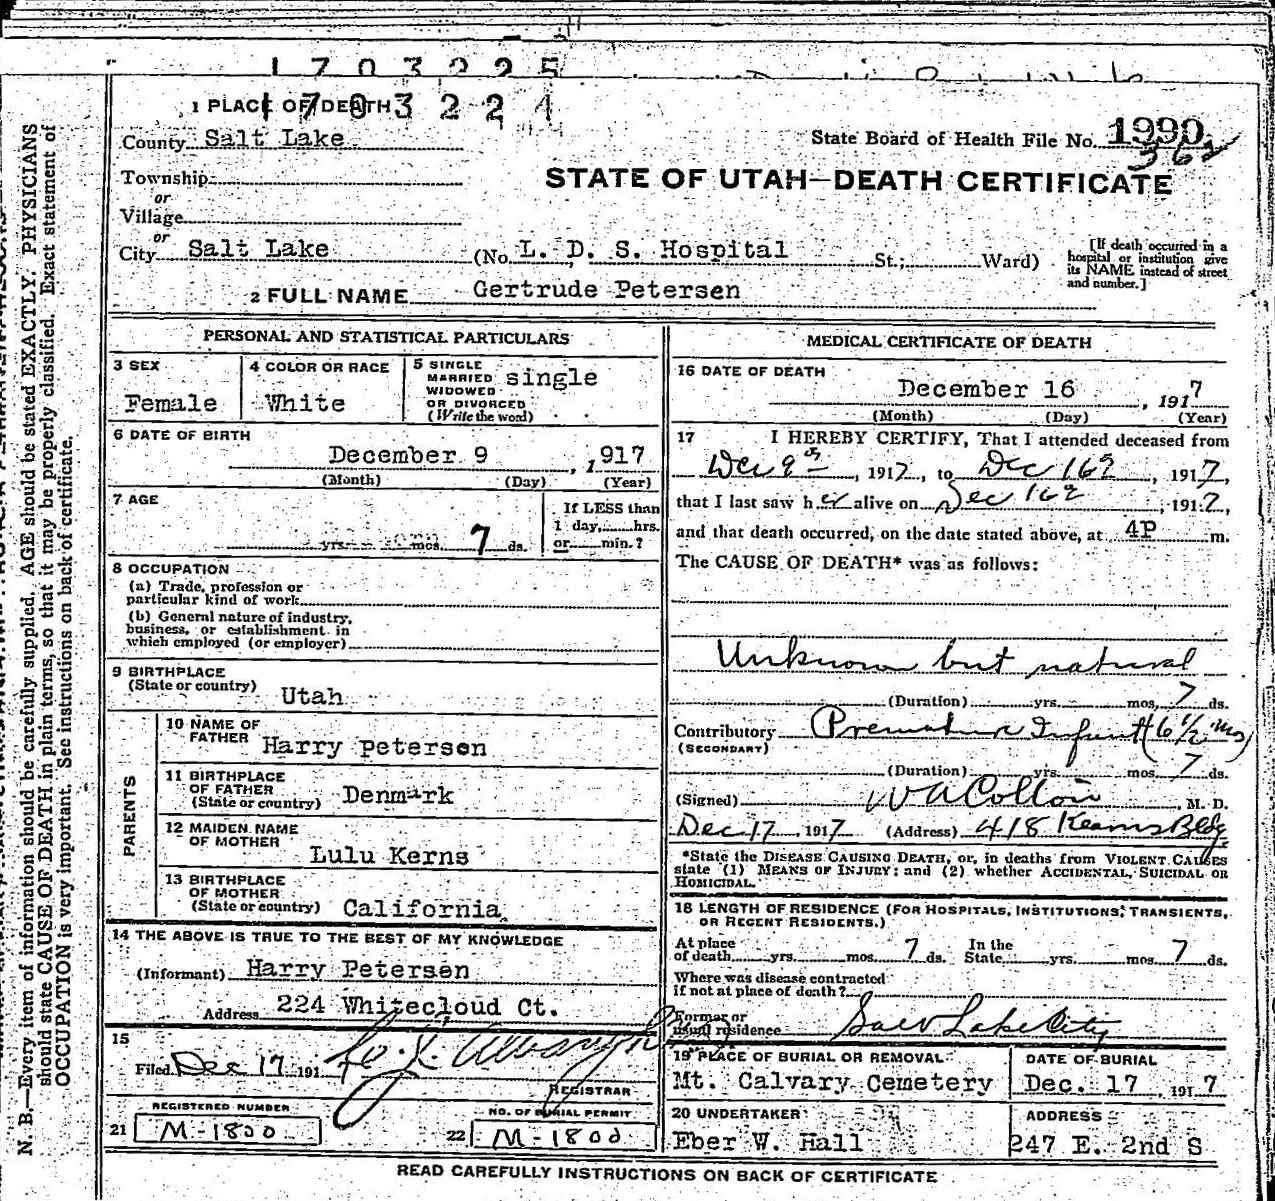 1703225
1 PLACE OF DEATH 1703224
County Salt Lake
State Board of Health File No. 1990
362
Township
or
Village
STATE OF UTAH—DEATH CERTIFICATE
or
City Salt Lake (No. L. D. S. Hospital St.; Ward)
[If death occurred in a hospital or institution give its NAME instead of street and number.]
2 FULL NAME Gertrude Petersen
PERSONAL AND STATISTICAL PARTICULARS
3 SEX
Female
4 COLOR OR RACE
White
5 SINGLE
MARRIED
WIDOWED
OR DIVORCED
(Write the word)
single
6 DATE OF BIRTH
December 9, 1917
(Month) (Day) (Year)
7 AGE
yrs. mos. 7 ds.
If LESS than
1 day, hrs.
or min.?
8 OCCUPATION
(a) Trade, profession or
particular kind of work
(b) General nature of industry,
business, or establishment in
which employed (or employer)
9 BIRTHPLACE
(State or country) Utah
PARENTS
10 NAME OF
FATHER Harry petersen
11 BIRTHPLACE
OF FATHER
(State or country) Denmark
12 MAIDEN NAME
OF MOTHER
Lulu Kerns
13 BIRTHPLACE
OF MOTHER
(State or country) California
14 THE ABOVE IS TRUE TO THE BEST OF MY KNOWLEDGE
(Informant) Harry Petersen
Address 224 Whitecloud Ct.
15
Filed Dec 17 191
REGISTRAR
REGISTERED NUMBER
21 M-1800
NO. OF BURIAL PERMIT
22 M-1800
MEDICAL CERTIFICATE OF DEATH
16 DATE OF DEATH
December 16, 1917
(Month) (Day) (Year)
17 I HEREBY CERTIFY, That I attended deceased from
Dec 9th, 1917, to Dec 16th, 1917,
that I last saw her alive on Dec 16th, 1917,
and that death occurred, on the date stated above, at 4P m.
The CAUSE OF DEATH* was as follows:
Unknown but natural
(Duration) yrs. mos. 7 ds.
Contributory Premature Infant (6 1/2 mo)
(SECONDARY)
(Duration) yrs. mos. 7 ds.
(Signed) W A Colton, M. D.
Dec 17, 1917 (Address) 418 Kearns Bldg.
*State the DISEASE CAUSING DEATH, or, in deaths from VIOLENT CAUSES
state (1) MEANS OF INJURY; and (2) whether ACCIDENTAL, SUICIDAL OR
HOMICIDAL.
18 LENGTH OF RESIDENCE (FOR HOSPITALS, INSTITUTIONS, TRANSIENTS,
OR RECENT RESIDENTS.)
At place
of death yrs. mos. 7 ds.
In the
State yrs. mos. 7 ds.
Where was disease contracted
if not at place of death?
Former or
usual residence Salt Lake City
19 PLACE OF BURIAL OR REMOVAL
Mt. Calvary Cemetery
DATE OF BURIAL
Dec. 17, 1917
20 UNDERTAKER
Eber W. Hall
ADDRESS
247 E. 2nd S
READ CAREFULLY INSTRUCTIONS ON BACK OF CERTIFICATE
N. B.—Every item of information should be carefully supplied. AGE should be stated EXACTLY. PHYSICIANS
should state CAUSE OF DEATH in plain terms, so that it may be properly classified. Exact statement of
OCCUPATION is very important. See instructions on back of certificate.